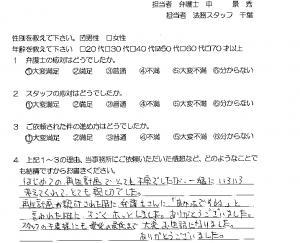 担当者 弁護士 中 景 秀
担当者 法務スタッフ 千葉
性別を教えて下さい。 ☑男性 □女性
年齢を教えて下さい □20代□30代□40代☑50代□60代□70才以上
1 弁護士の応対はどうでしたか。
①大変満足 ②満足 ③普通 ④不満 ⑤大変不満 ⑥分からない
2 スタッフの応対はどうでしたか。
①大変満足 ②満足 ③普通 ④不満 ⑤大変不満 ⑥分からない
3 ご依頼された件の進め方はどうでしたか。
①大変満足 ②満足 ③普通 ④不満 ⑤大変不満 ⑥分からない
4 上記1～3の理由、当事務所にご依頼いただいた感想など、どのようなことで
も結構ですからお書きください。
はじめての、再生計画で とても不安でしたが、一緒に いろいろ
考えてくれて、とても 親切でした。
再生計画が認可された時に、弁護士さんに
言われた時に、すごく ホッとしました。ありがとうございました。
スタッフの千葉様にも 大変お世話になりました。
ありがとうございました。